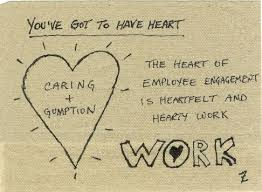 YOU'VE GOT TO HAVE HEART
CARING
+
GUMPTION
THE HEART OF
EMPLOYEE ENGAGEMENT
IS HEARTFELT AND
HEARTY WORK
WORK
Z